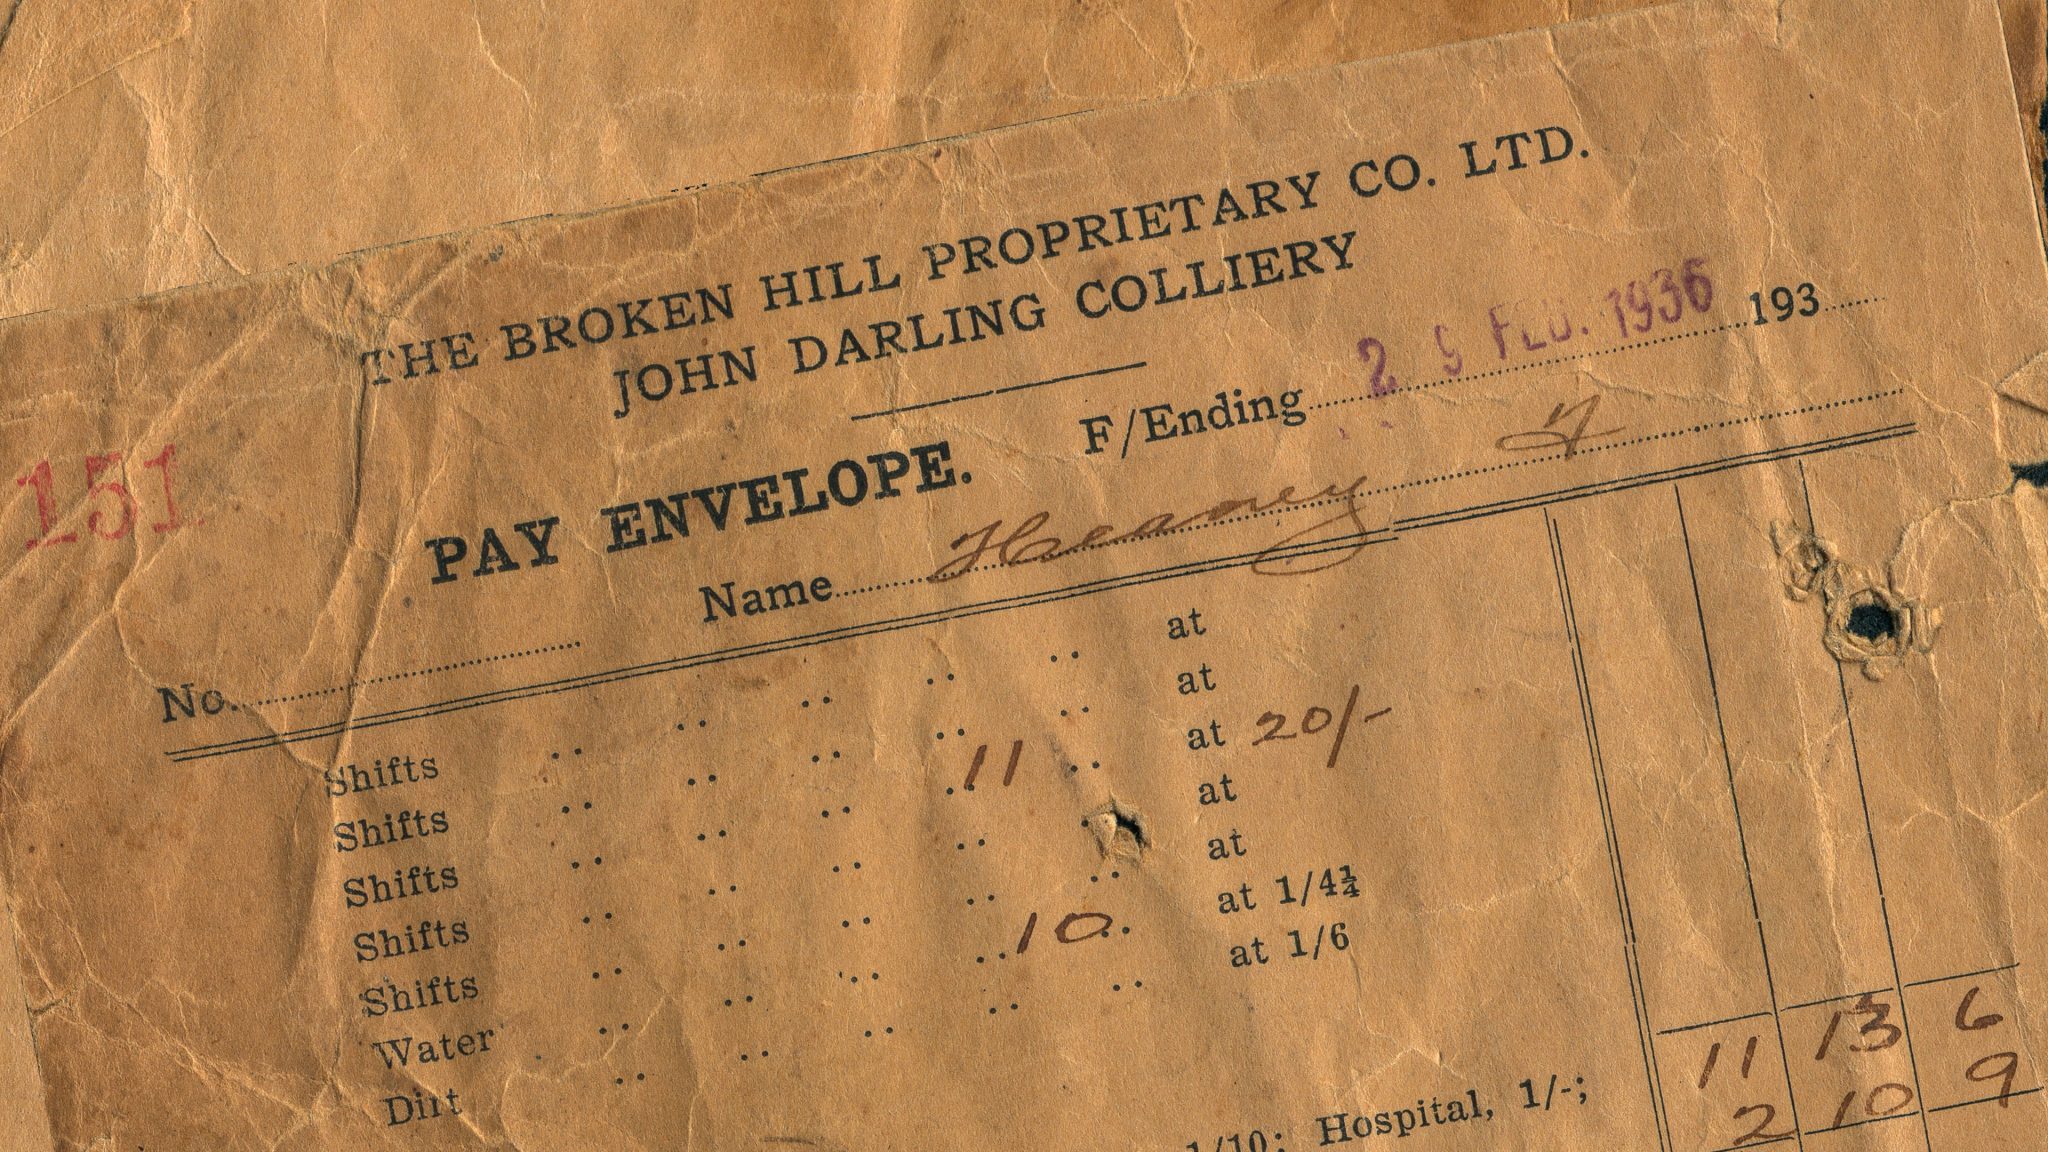 THE BROKEN HILL PROPRIETARY CO. LTD.
JOHN DARLING COLLIERY
151
PAY ENVELOPE. F/Ending 29 FEB. 1936 193
No. Name Heaney
Shifts at
Shifts at
Shifts 11 at 20/-
Shifts at
Shifts at
Water 10 at 1/4¼
Dirt at 1/6
11 13 6
1/10; Hospital, 1/-; 2 10 9